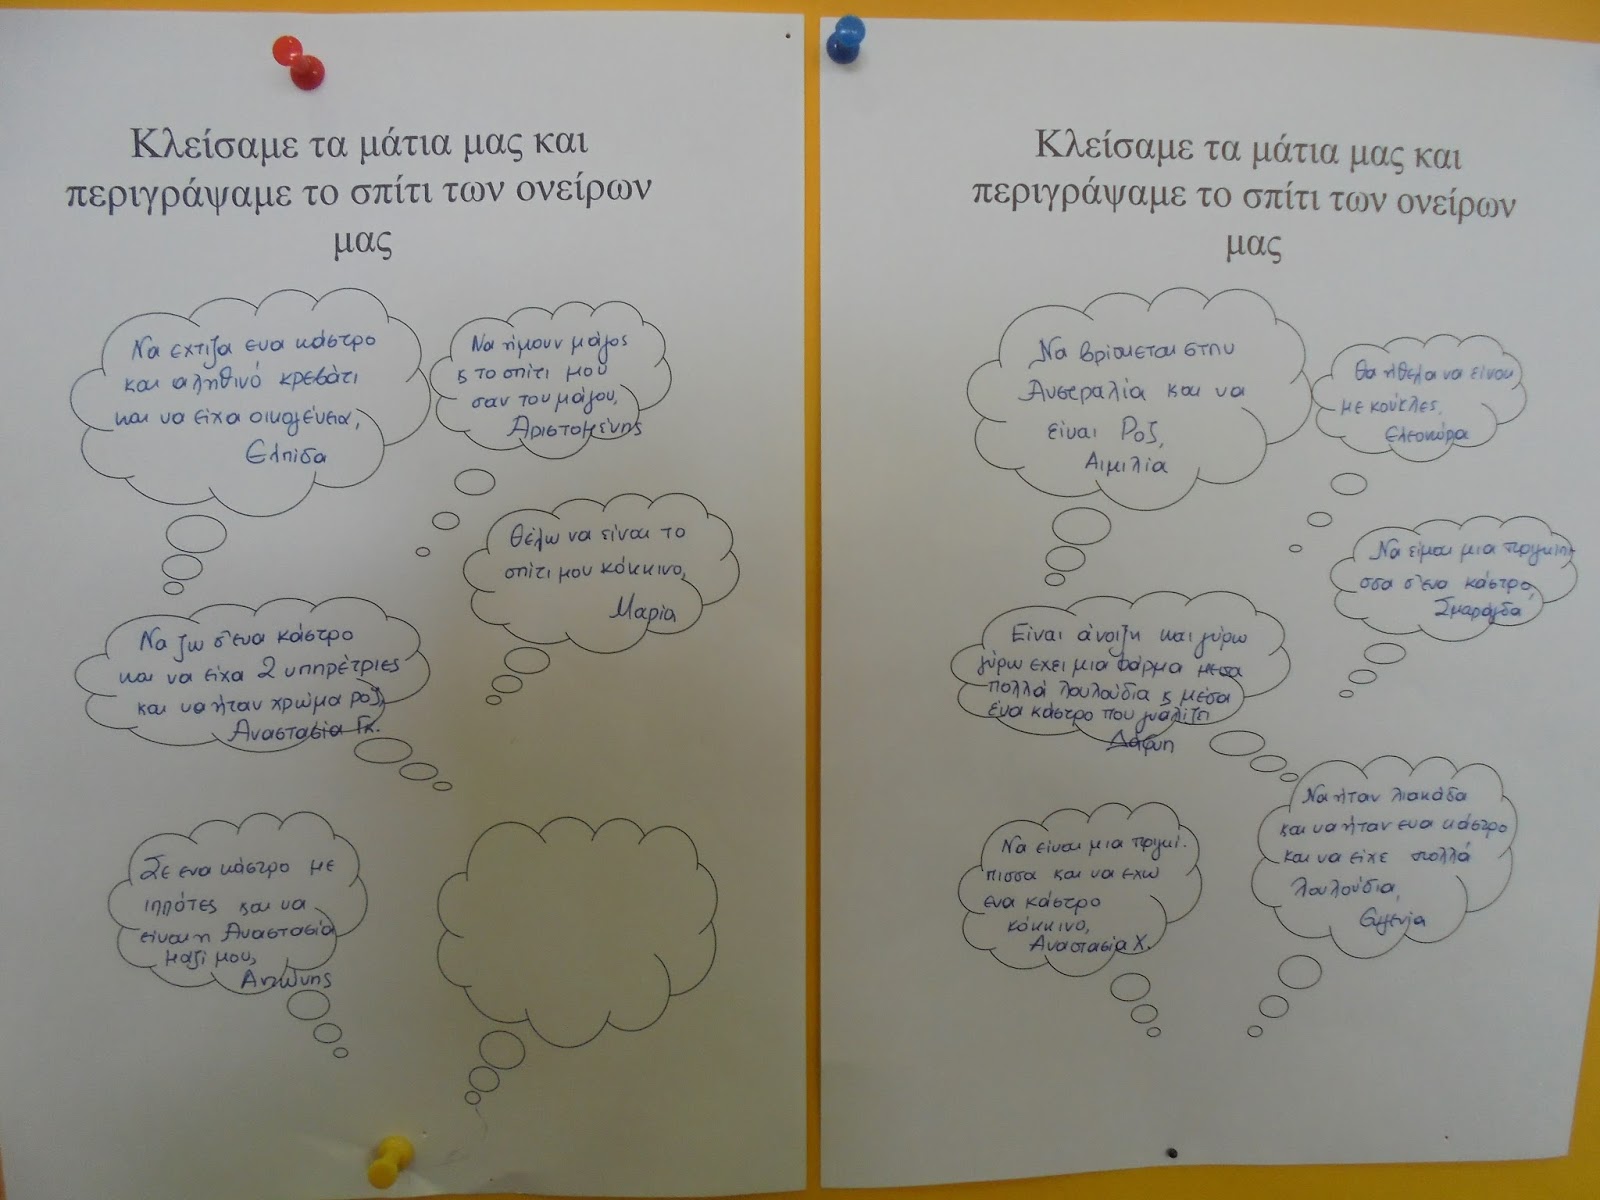 Κλείσαμε τα μάτια μας και
περιγράψαμε το σπίτι των ονείρων
μας
Να εχτιζα ενα κάστρο
και αληθινό κρεβάτι
και να είχα οικογένεια,
Ελπίδα
Να ήμουν μάγος
ς το σπίτι μου
σαν του μάγου,
Αριστομένης
Θέλω να είναι το
σπίτι μου κόκκινο,
Μαρία
Να ζω σ'ενα κάστρο
και να είχα 2 υπηρέτριες
και να ήταν χρώμα ροζ,
Αναστασία Γκ.
Σε ενα κάστρο με
ιππότες και να
είναι η Αναστασία
μαζί μου,
Αντώνης
Κλείσαμε τα μάτια μας και
περιγράψαμε το σπίτι των ονείρων
μας
Να βρίσκεται στην
Αυστραλία και να
είναι Ροζ,
Αιμιλία
Θα ήθελα να είναι
με κούκλες,
Ελεονώρα
Να είμαι μια πριγκιπι-
σσα σ'ενα κάστρο,
Σμαράγδα
Είναι άνοιξη και γύρω
γύρω εχει μια φάρμα μεσα
πολλά λουλούδια ς μέσα
ένα κάστρο που γυαλίζει
Δάφνη
Να είναι μια πριγκί-
πισσα και να εχω
ενα κάστρο
κόκκινο,
Αναστασία Χ.
Να ήταν λιακάδα
και να ήταν ενα κάστρο
και να είχε πολλά
λουλούδια,
Ευγενία